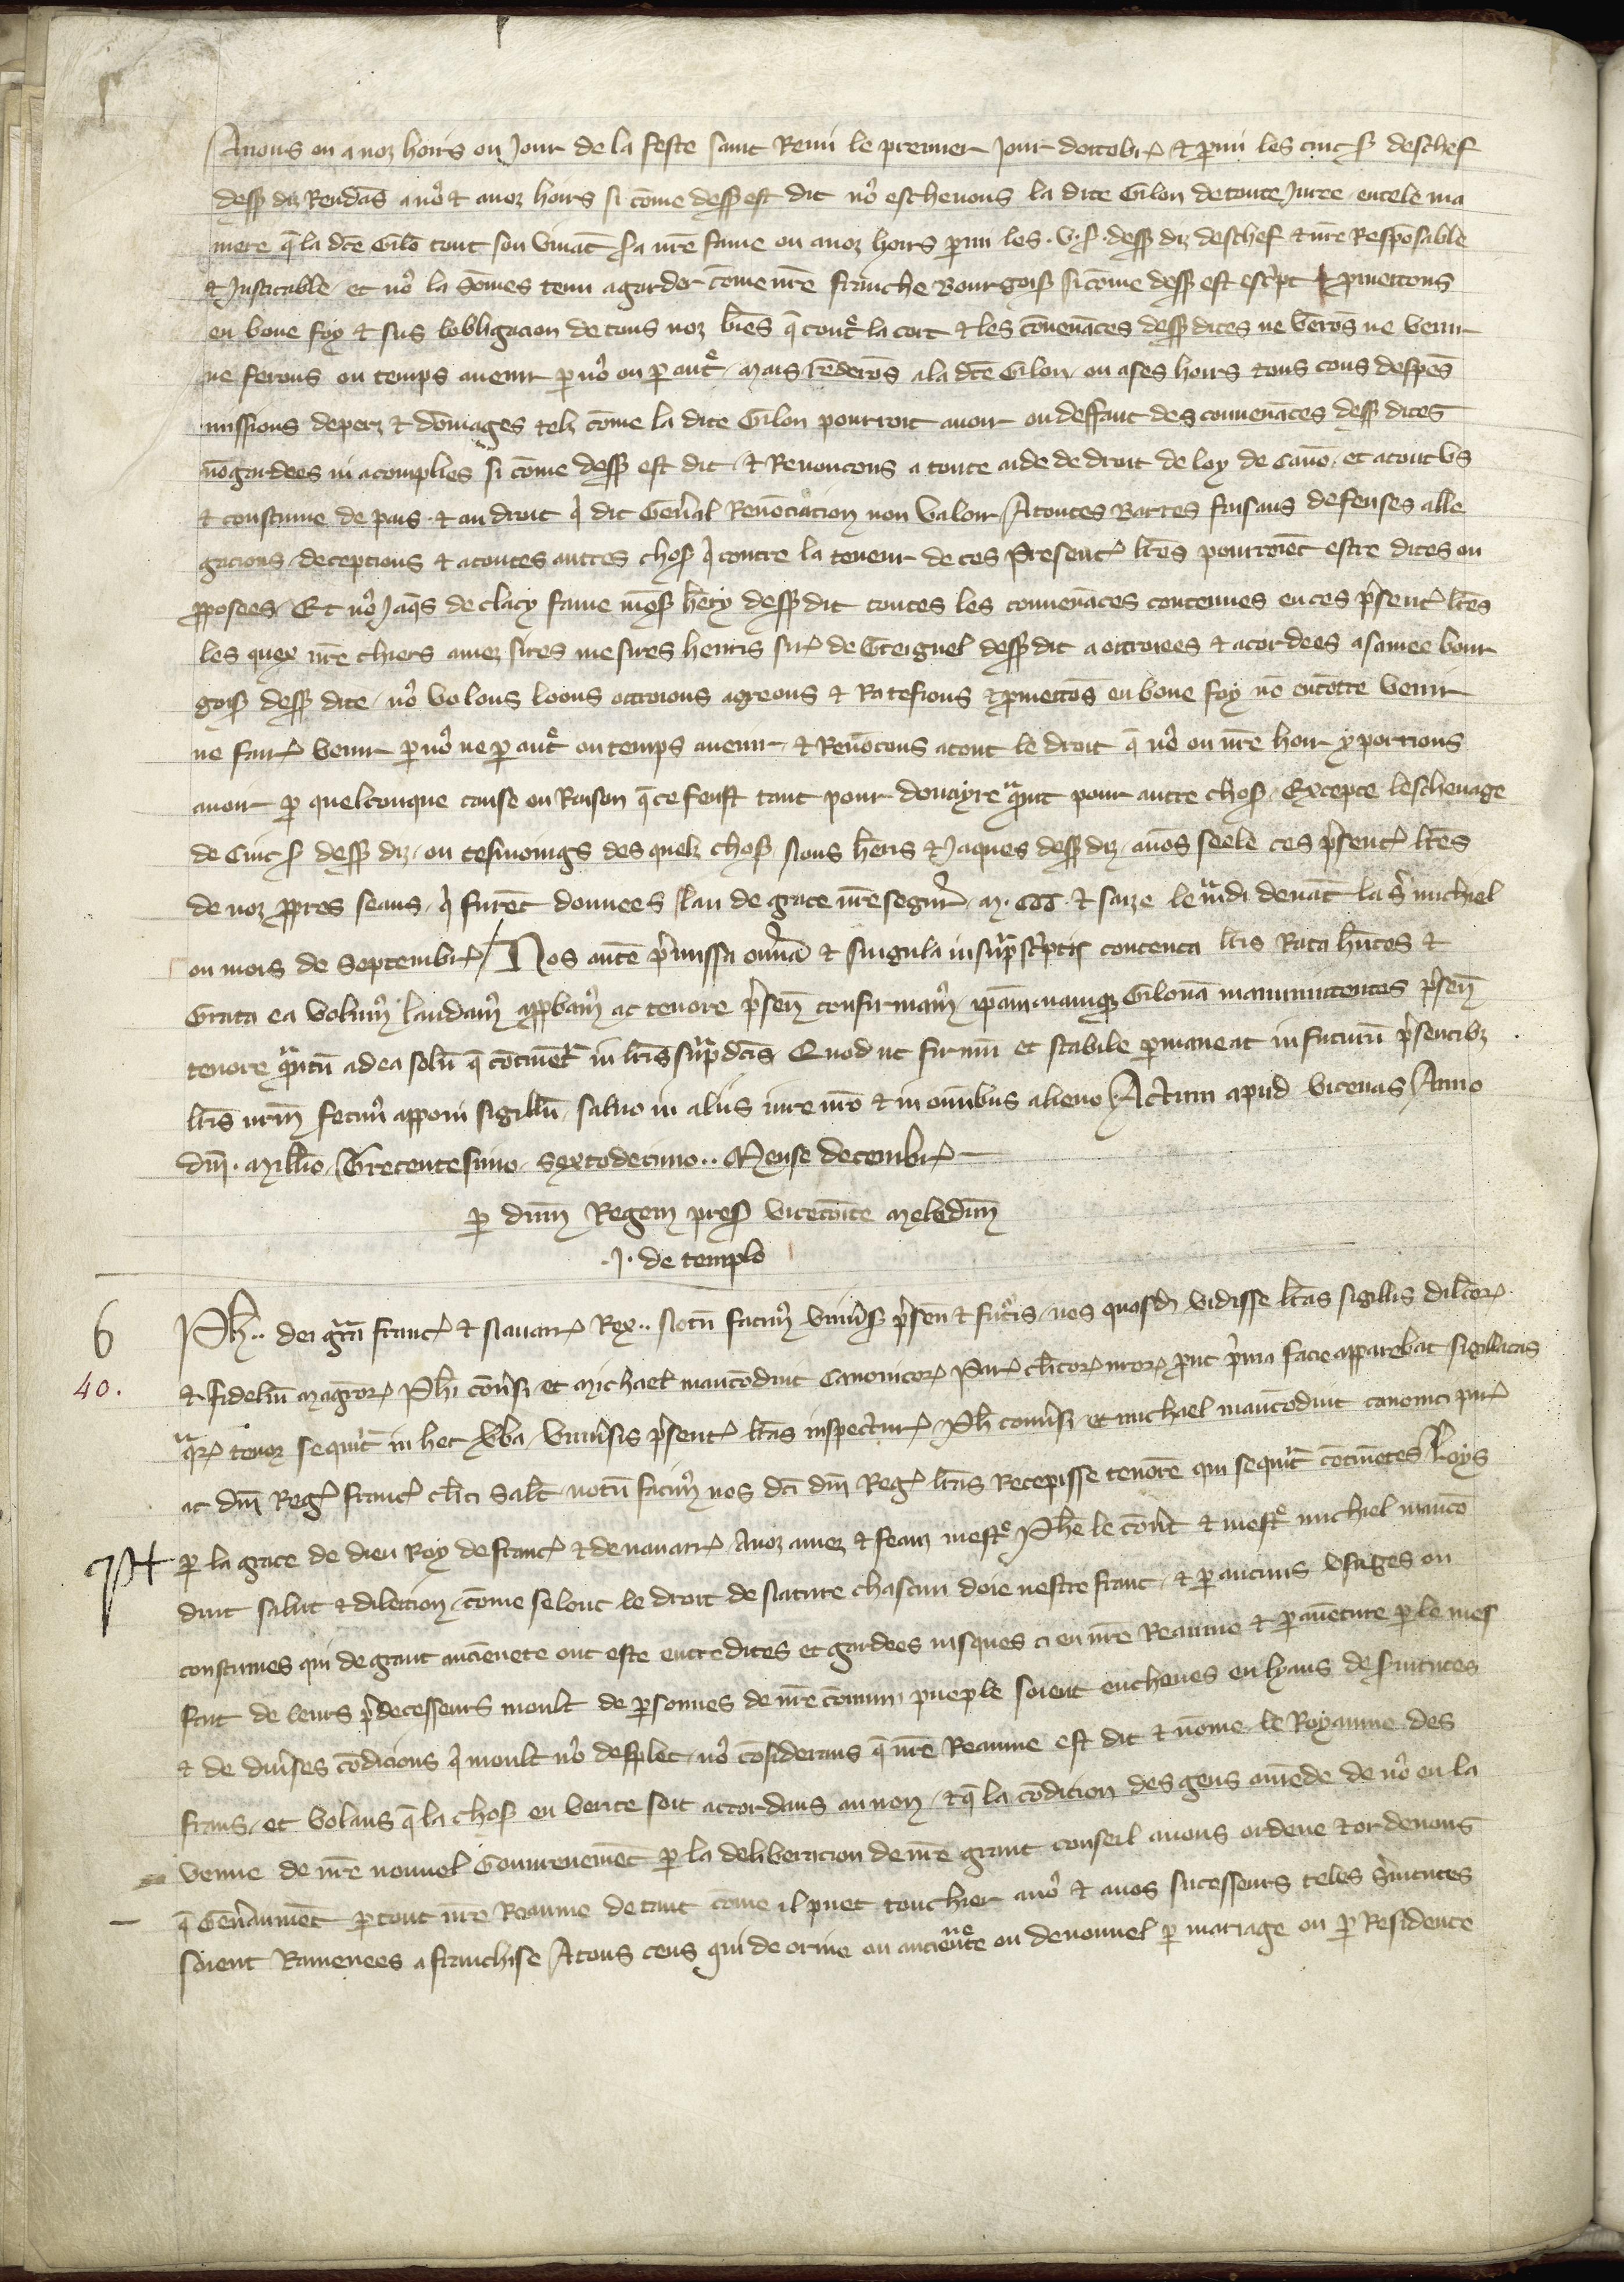 A nous ou a noz hoirs ou jour de la feste saint Remi le premier jour doitobr̄ et ꝑmi les cinc s̄ deschef
dess̄ diz Rendās a no᷒ et a noz hoirs si cōme dess̄ est dit no᷒ eschevons la dite Gilon de toute Juree en tele ma
niere q̄ la dc̄e Gilō tout son vivāt s̄a nr̄e fame ou a noz hoirs ꝑmi les .v. s̄. dess̄ diz deschef et nr̄e Respōsable
et Justicable et no᷒ la sōmes tenu a garder cōme nr̄e franche Bourgois̄ si cōme dess̄ est escͥpt et ꝓmettons
en bone foy et sus lobligacion de tous noz biēs q̄ contᵉ la tort et les cōvenāces dess̄ dites ne vērōs ne venir
ne ferons ou temps avenir ꝑ no᷒ ou ꝑ autᵉ mais rēderōs a la dc̄e Gilon ou a ses hoirs tous cous despēs
missions deperz et dōmages telz cōme la dite Gilon pourroit avoir ou deffaut des convenāces dess̄ dites
nō gardees ni acomplies si cōme dess̄ est dit et Renoncons a toute aide de droit de loy de Canō et a tout vs
et coustume de pais et au droit qͥ dit Genᵉal Renōciacion non valoir A toutes Barres frisans defenses alle
gacions decepcions et a toutes autres chos̄ qͥ contre la teneur de ces Present̄ lr̄es pourroiēt estre dites ou
ꝓposees Et no᷒ Jaq̄s de clacy fame mōs̄ hēry dess̄ dit toutes les convenāces contenues en ces p̄sent̄ lr̄es
les quex nr̄e chiers amez sires mesires henris sir̄ de Greignel dess̄ dit a ottroiees et acordees a samee bour
gois̄ dess̄ dite no᷒ volons loons ottroions agreons et Ratefions et ꝓmettōs en bone foy nō encōtre venir
ne fair̄ venir ꝑ no᷒ ne ꝑ autᵉ ou temps avenir et Renōcons a tout le droit q̄ no᷒ ou nr̄e hoir y porrions
avoir ꝑ quelconque cause ou Raison q̄ ce feust tant pour douayre qᵃnt pour autre chos̄ Excepte leschevage
de Cinc s̄ dess̄ diz ou tesmoings des quelz chos̄ Nous hēris et Jaques dess̄ diz avōs seele ces p̄sent̄ lr̄es
de noz ꝓpres seaus qͥ furēt donnees lan de grace nr̄e segnr̄ M. CCC. et saize le mᵃdi devāt la sͭ michiel
ou mois de Septembr̄ Nos autē p̄missa om̄ia et singula in sup̄scͥptis contenta lr̄is Rata hn̄tes et
Grata ea volum᷒ laudam᷒ apꝓbam᷒ ac tenore p̄sen̄ confirmam᷒ ip̄am namqꝫ Gilonā manumittentes p̄sen̄
tenore qᵃntū ad ea solū q̄ cōtinēt᷑ in lr̄is sup̄dc̄is Quod ut firmū et stabile ꝑmaneat in futurū p̄sentibꝫ
lr̄is nr̄m fecim᷒ apponi sigillū salvo in aliis iure nr̄o et in omībus alieno Actum apud vicenas Anno
dn̄i. Mill̄io Trecentesimo Sextodecimo .. Mense decembr̄
ꝑ dn̄m Regem pres̄ vicecōite Meledun̄
.J. de templo
6
40.
Ph̄.. dei grā franc̄ et Navarr̄ Rex.. Notū facim᷒ univᵉs̄ p̄sen̄ et futͥs nos quasd̄ vidisse lr̄as sigillis dilc̄or̄
et fideliū magr̄or̄ Ph̄i cōvᵉsi et Michael maucōduit Canonicor̄ Par̄ cl̄icor̄ nr̄or̄ ꝓut p̄ma facie apparebat sigillatas
qᵃr̄ tenor sequit᷑ in hec vᵉba Univᵉsis p̄sent̄ lr̄as inspectur̄ Ph̄ convᵉsi et michael maucōduit canonici par̄
ac dn̄i Reḡ franc̄ cl̄ici Salt̄ notū facim᷒ nos dc̄i dn̄i Reḡ lr̄as Recepisse tenorē qui sequit᷑ cōtinētes Loys
ꝑ la grace de dieu Roy de franc̄ et de navarr̄ A noz amez et feaux mestᵉ Ph̄e le cōvᵉt et mestᵉ michiel maucō
duit salut et dilection cōme selonc le droit de Nature chascun doie nestre franc et ꝑ aucuns usages ou
coustumes qui de grant anciēnete ont este entredites et gardees jusques ci en nr̄e Reaume et ꝑ avēture ꝑ le mes
fait de leurs p̄decesseurs moult de ꝑsonnes de nr̄e cōmun pueple soient encheues en lyans de sᵉvitutes
et de divᵉses cōdicions qͥ moult no᷒ desplet no᷒ cōsiderans q̄ nr̄e Reaume est dit et nōme le Royaume des
frans et volans q̄ la chos̄ en verite soit accordans au non et q̄ la cōdicion des gens amēde de no᷒ en la
venue de nr̄e nouvel Gouvᵉnemēt ꝑ la deliberacion de nr̄e grant conseil avons ordene et ordenons
q̄ Genᵉaumēt ꝑ tout nr̄e Reaume de tant cōme il puet touchier a no᷒ et a nos sucesseurs teles sᵉvitutes
soient Ramenees a franchise A tous ceus qui de orine ou anciennete ou de nouvel ꝑ mariage ou ꝑ Residence